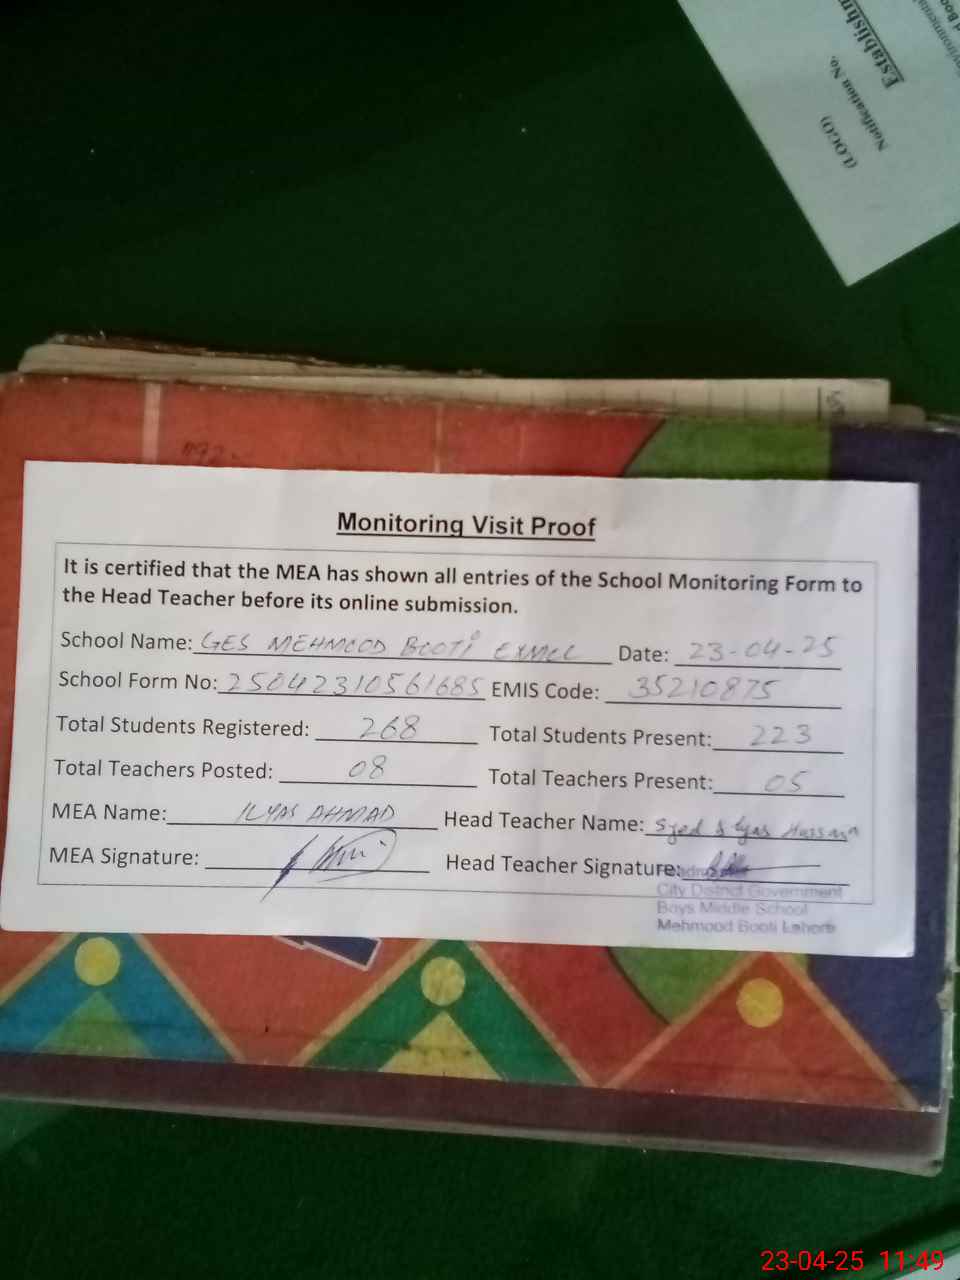 Environmental
d Boo
Establishm
Notification No.
(LOGO)
Monitoring Visit Proof
It is certified that the MEA has shown all entries of the School Monitoring Form to
the Head Teacher before its online submission.
School Name: GES MEHMOOD BOOTi Date: 23-04-25
School Form No: 25042310561685 EMIS Code: 35210875
Total Students Registered: 268 Total Students Present: 223
Total Teachers Posted: 08 Total Teachers Present: 05
MEA Name: ILYAS AHMAD Head Teacher Name: Syed Ilyas Hussain
MEA Signature: Head Teacher Signature:
City District Government
Boys Middle School
Mehmood Booti Lahore
23-04-25 11:49